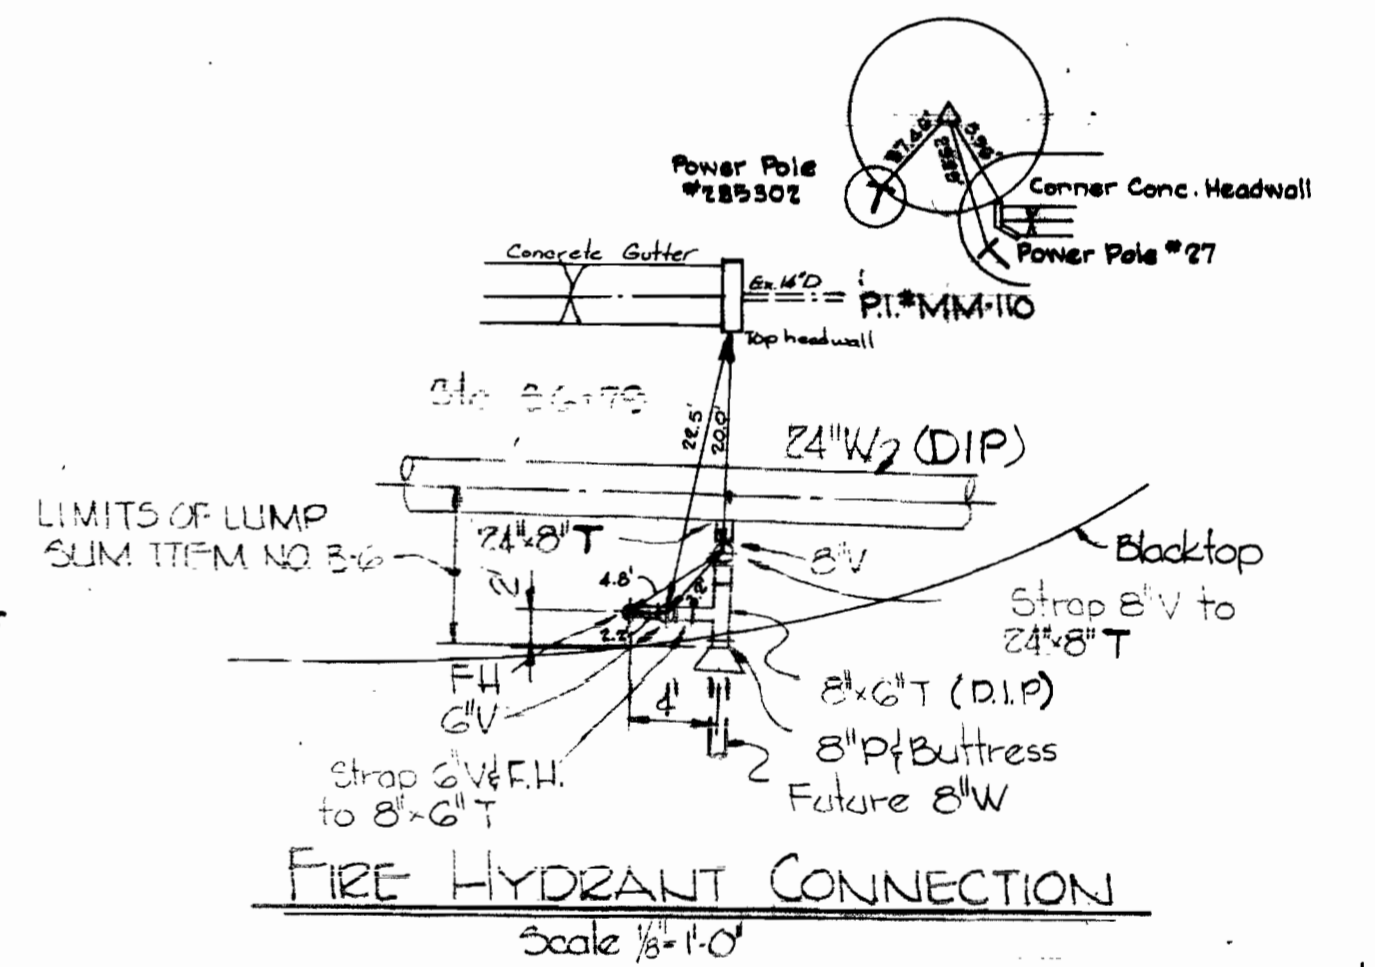 Power Pole
#285302
Corner Conc. Headwall
Power Pole #27
Concrete Gutter
P.I.#MM-110
Top headwall
Sta
22.5'
20.0'
24"W (DIP)
LIMITS OF LUMP
SUM ITEM NO. B-6
24"x8" T
8"V
Blacktop
4.8'
2'
2.2'
Strap 8"V to
24"x8" T
FH
6"V
4'
8"x6" T (D.I.P)
8"P & Buttress
Future 8"W
Strap 6"V & F.H.
to 8"x6" T
FIRE HYDRANT CONNECTION
Scale 1/8"=1'-0"